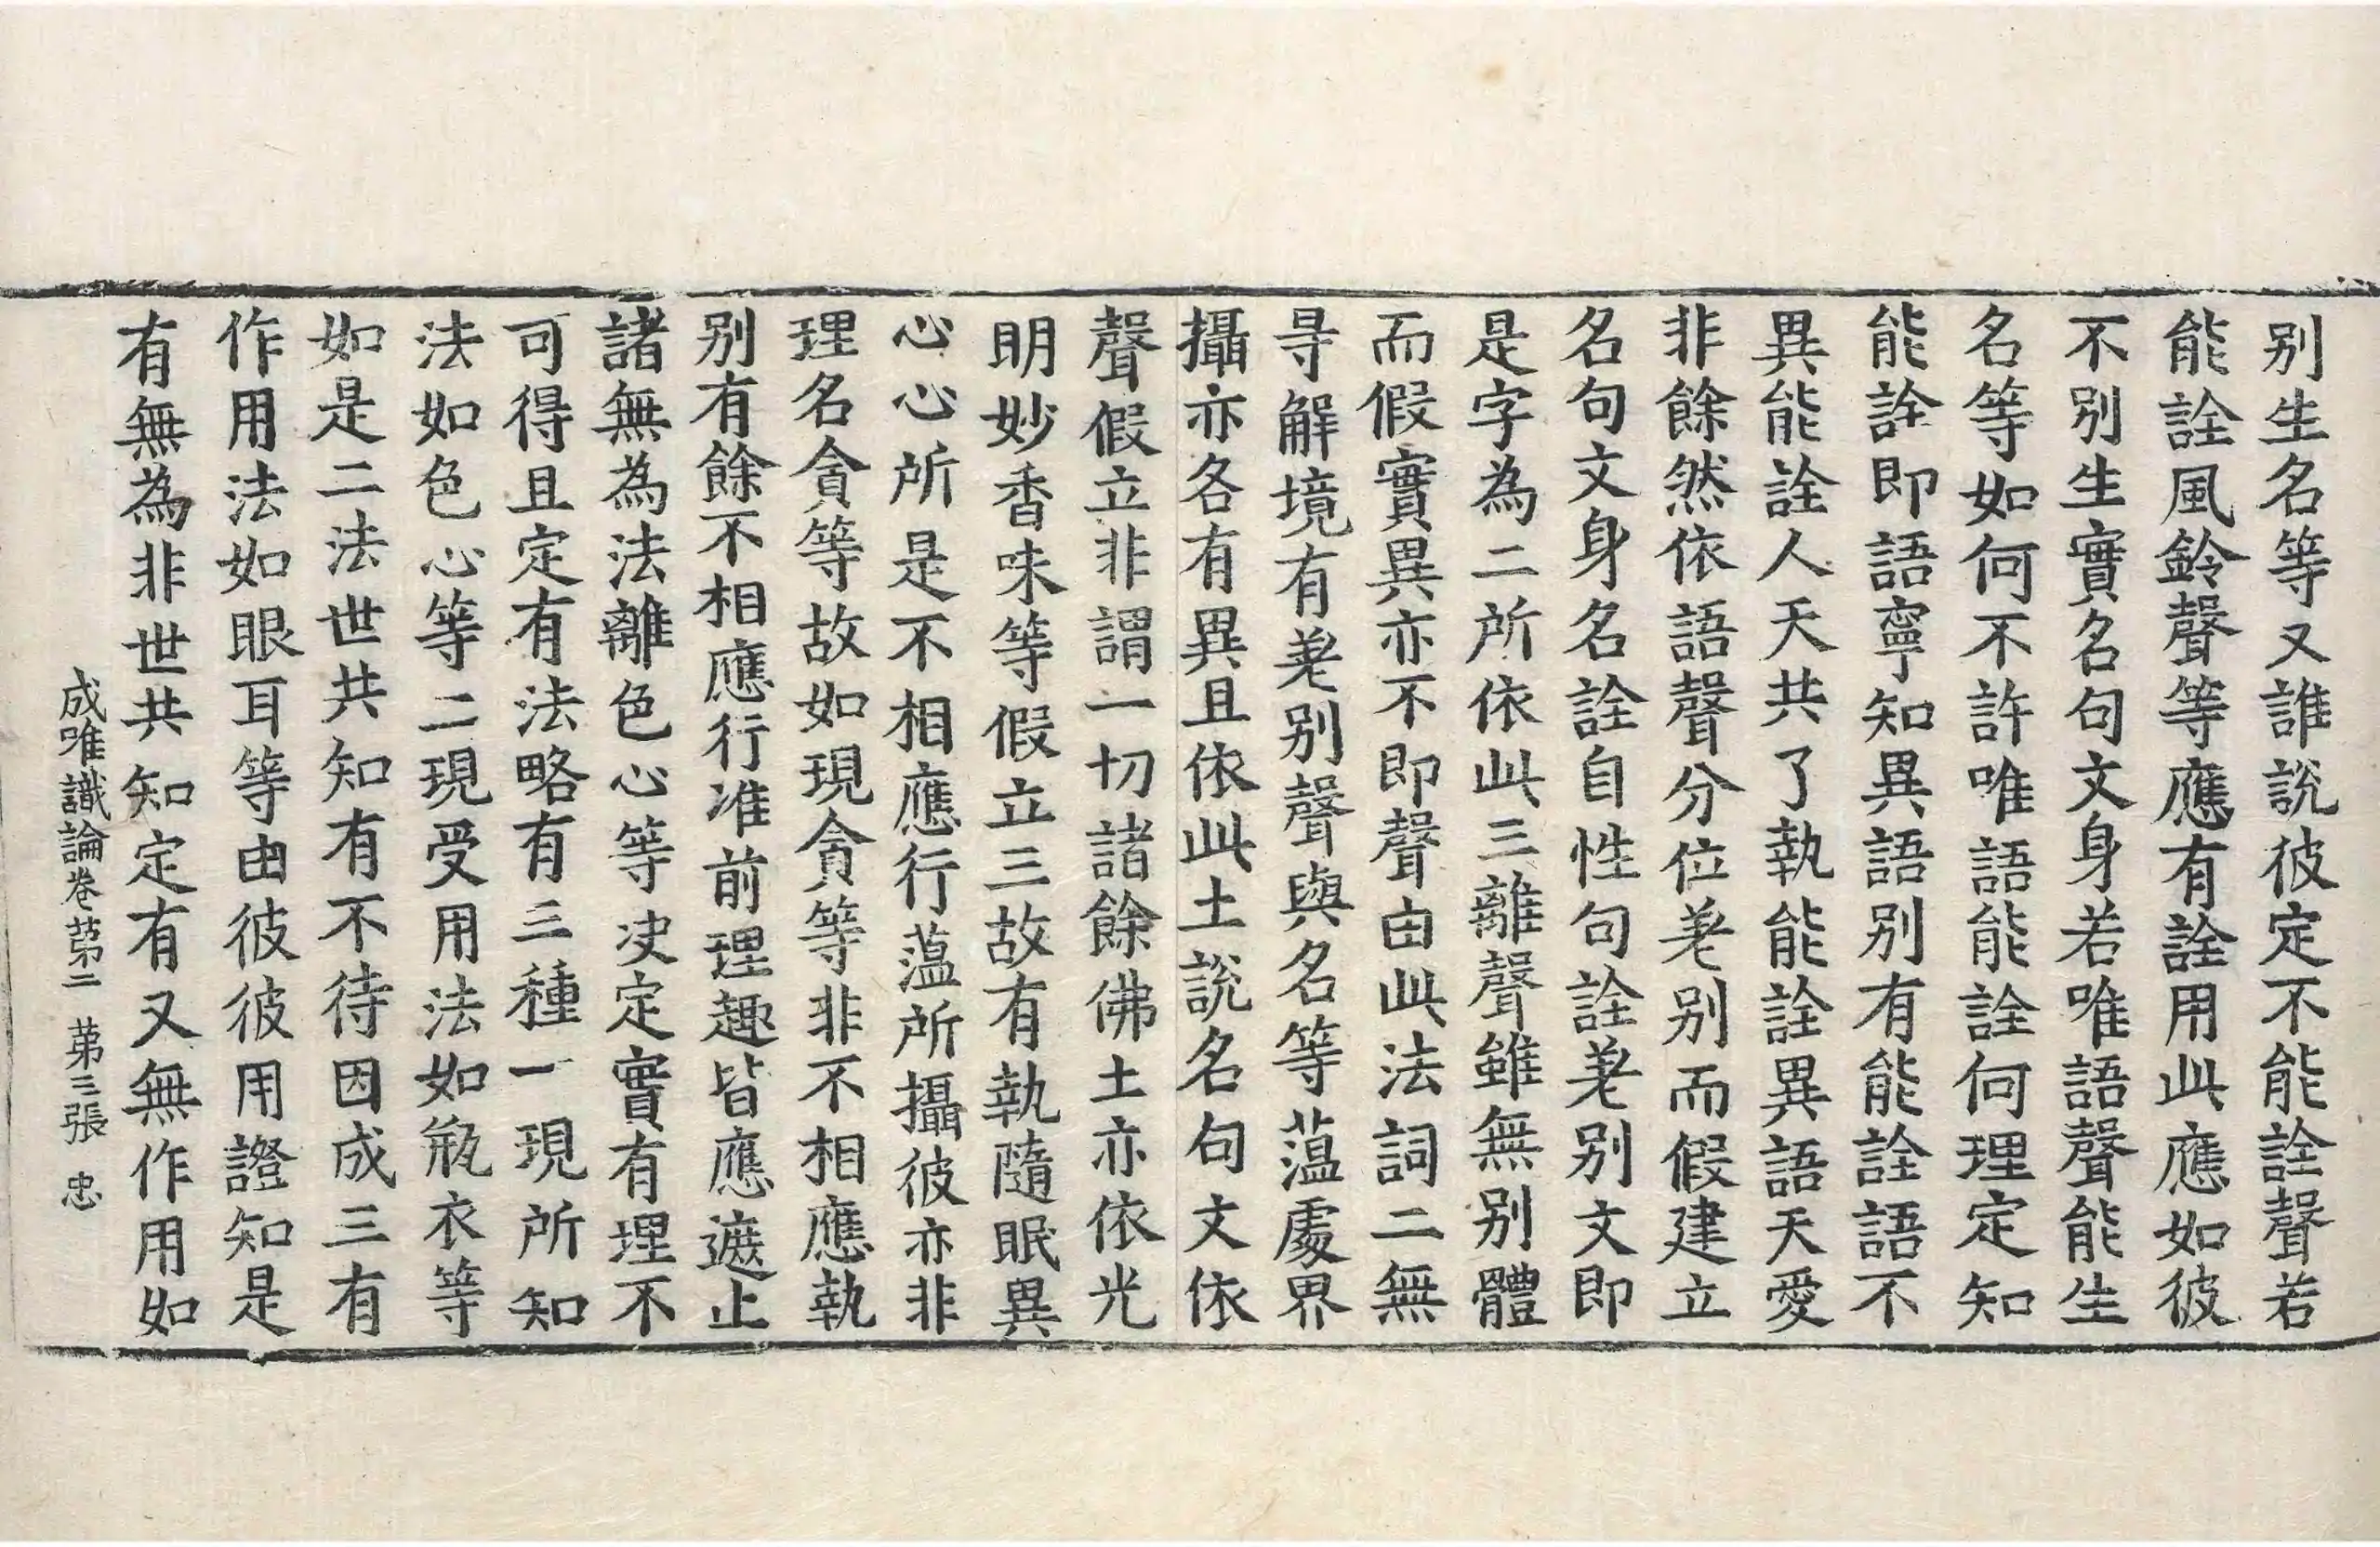 别生名等又誰說彼定不能詮聲若
能詮風鈴聲等應有詮用此應如彼
不别生實名句文身若唯語聲能生
名等如何不許唯語能詮何理定知
能詮即語寧知異語别有能詮語不
異能詮人天共了執能詮異語天愛
非餘然依語聲分位差别而假建立
名句文身名詮自性句詮差别文即
是字為二所依此三離聲雖無别體
而假實異亦不即聲由此法詞二無
㝵解境有差别聲與名等蘊處界
攝亦各有異且依此土說名句文依
聲假立非謂一切諸餘佛土亦依光
明妙香味等假立三故有執隨眠異
心心所是不相應行蘊所攝彼亦非
理名貪等故如現貪等非不相應執
别有餘不相應行准前理趣皆應遮止
諸無為法離色心等決定實有理不
可得且定有法略有三種一現所知
法如色心等二現受用法如瓶衣等
如是二法世共知有不待因成三有
作用法如眼耳等由彼彼用證知是
有無為非世共知定有又無作用如
成唯識論卷苐二 苐三張 忠